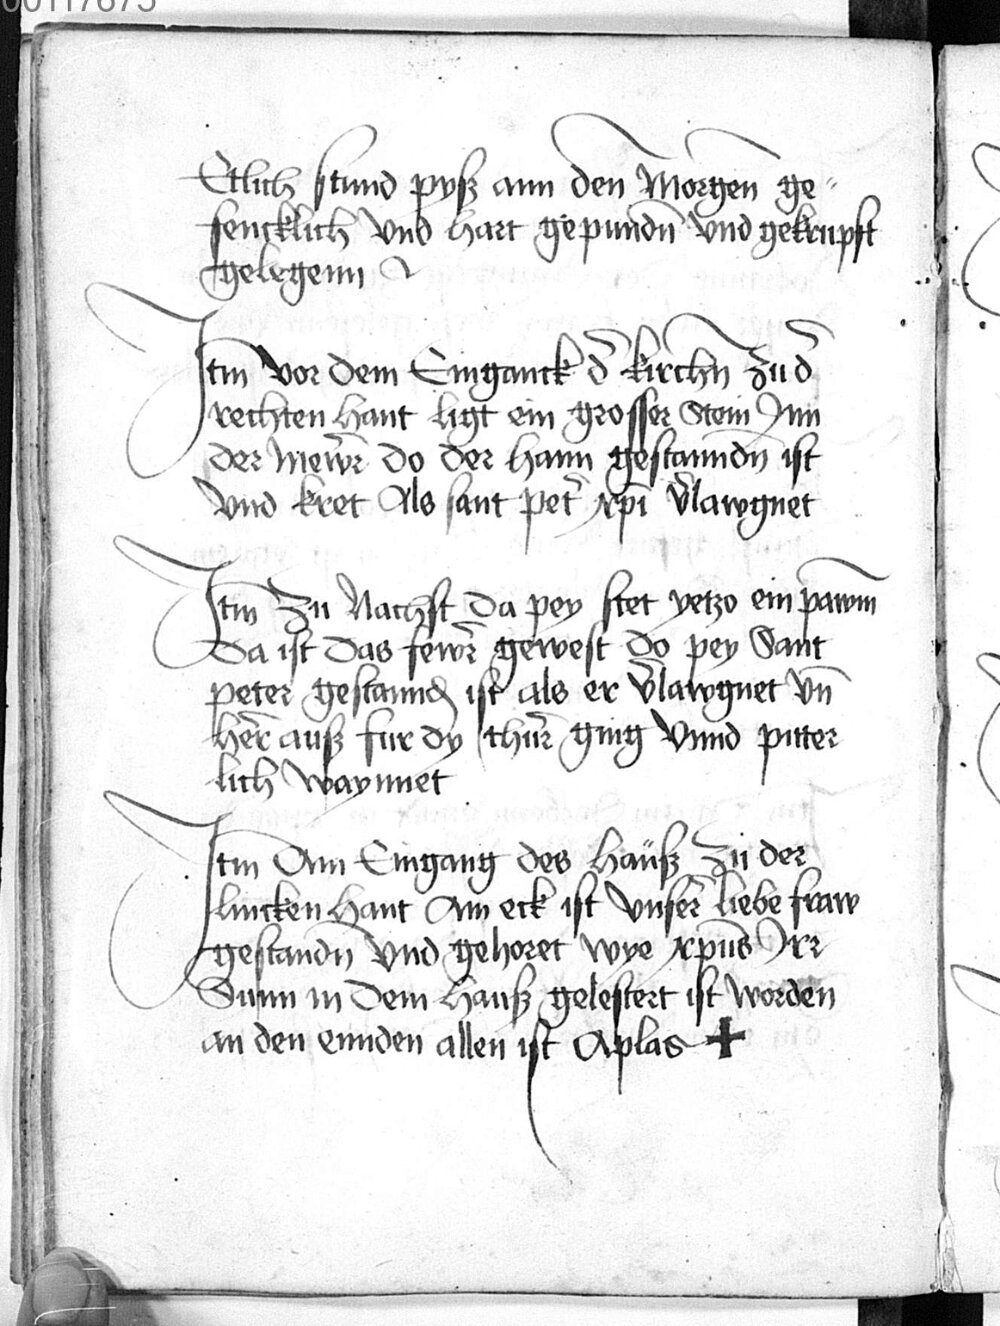 00117675
Etlich stund pyß ann den Morgen ge⸗
fencklich vnd hart gepundn̄ vnd gekrupft
gelegenn
Itm̄ vor dem Einganck d̄ kirchn̄ Zu d̄
rechten hant ligt ein grosser Stein Inn
der mewr̄ do der hann gestanndn̄ ist
vnd kret Als sant pet̄ xp̄i v̄lawgnet
Itm̄ Zu Nachst da pey stet yetzo ein pawm̄
Da ist das fewr̄ gewest do pey Sant
peter gestannd̄ ist als er v̄lawgnet vn̄
her̄ auß fur dy thur̄ ging vnnd pitter
lich waynnet
Itm̄ Am Eingang des hauß Zu der
lincken hant Am eck ist vnser̄ liebe fraw
gestandn̄ vnd gehoret wye xp̄us Irr
Sunn in dem hauß gelestert ist worden
an den ennden allen ist Aplas ✚